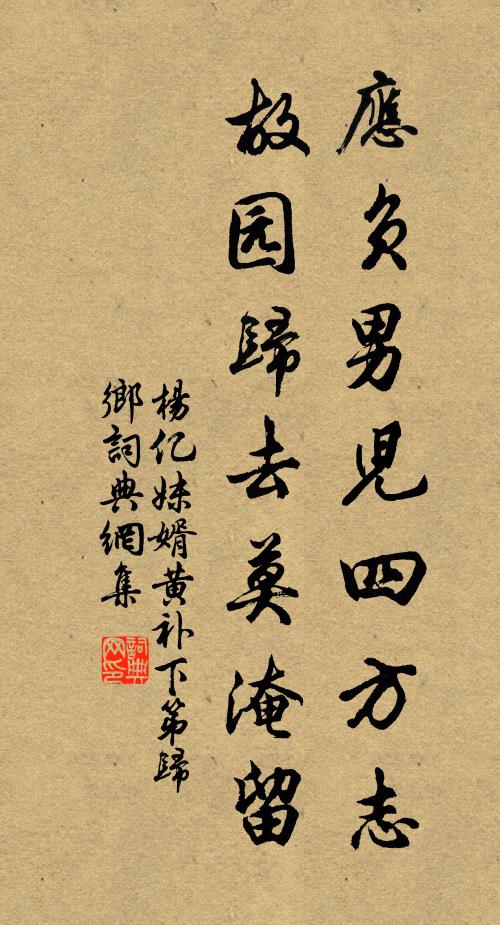 應負男児四方志
故园歸去莫淹留
楊亿妹婿黄补下第歸
鄉詞典網集
詞典网印